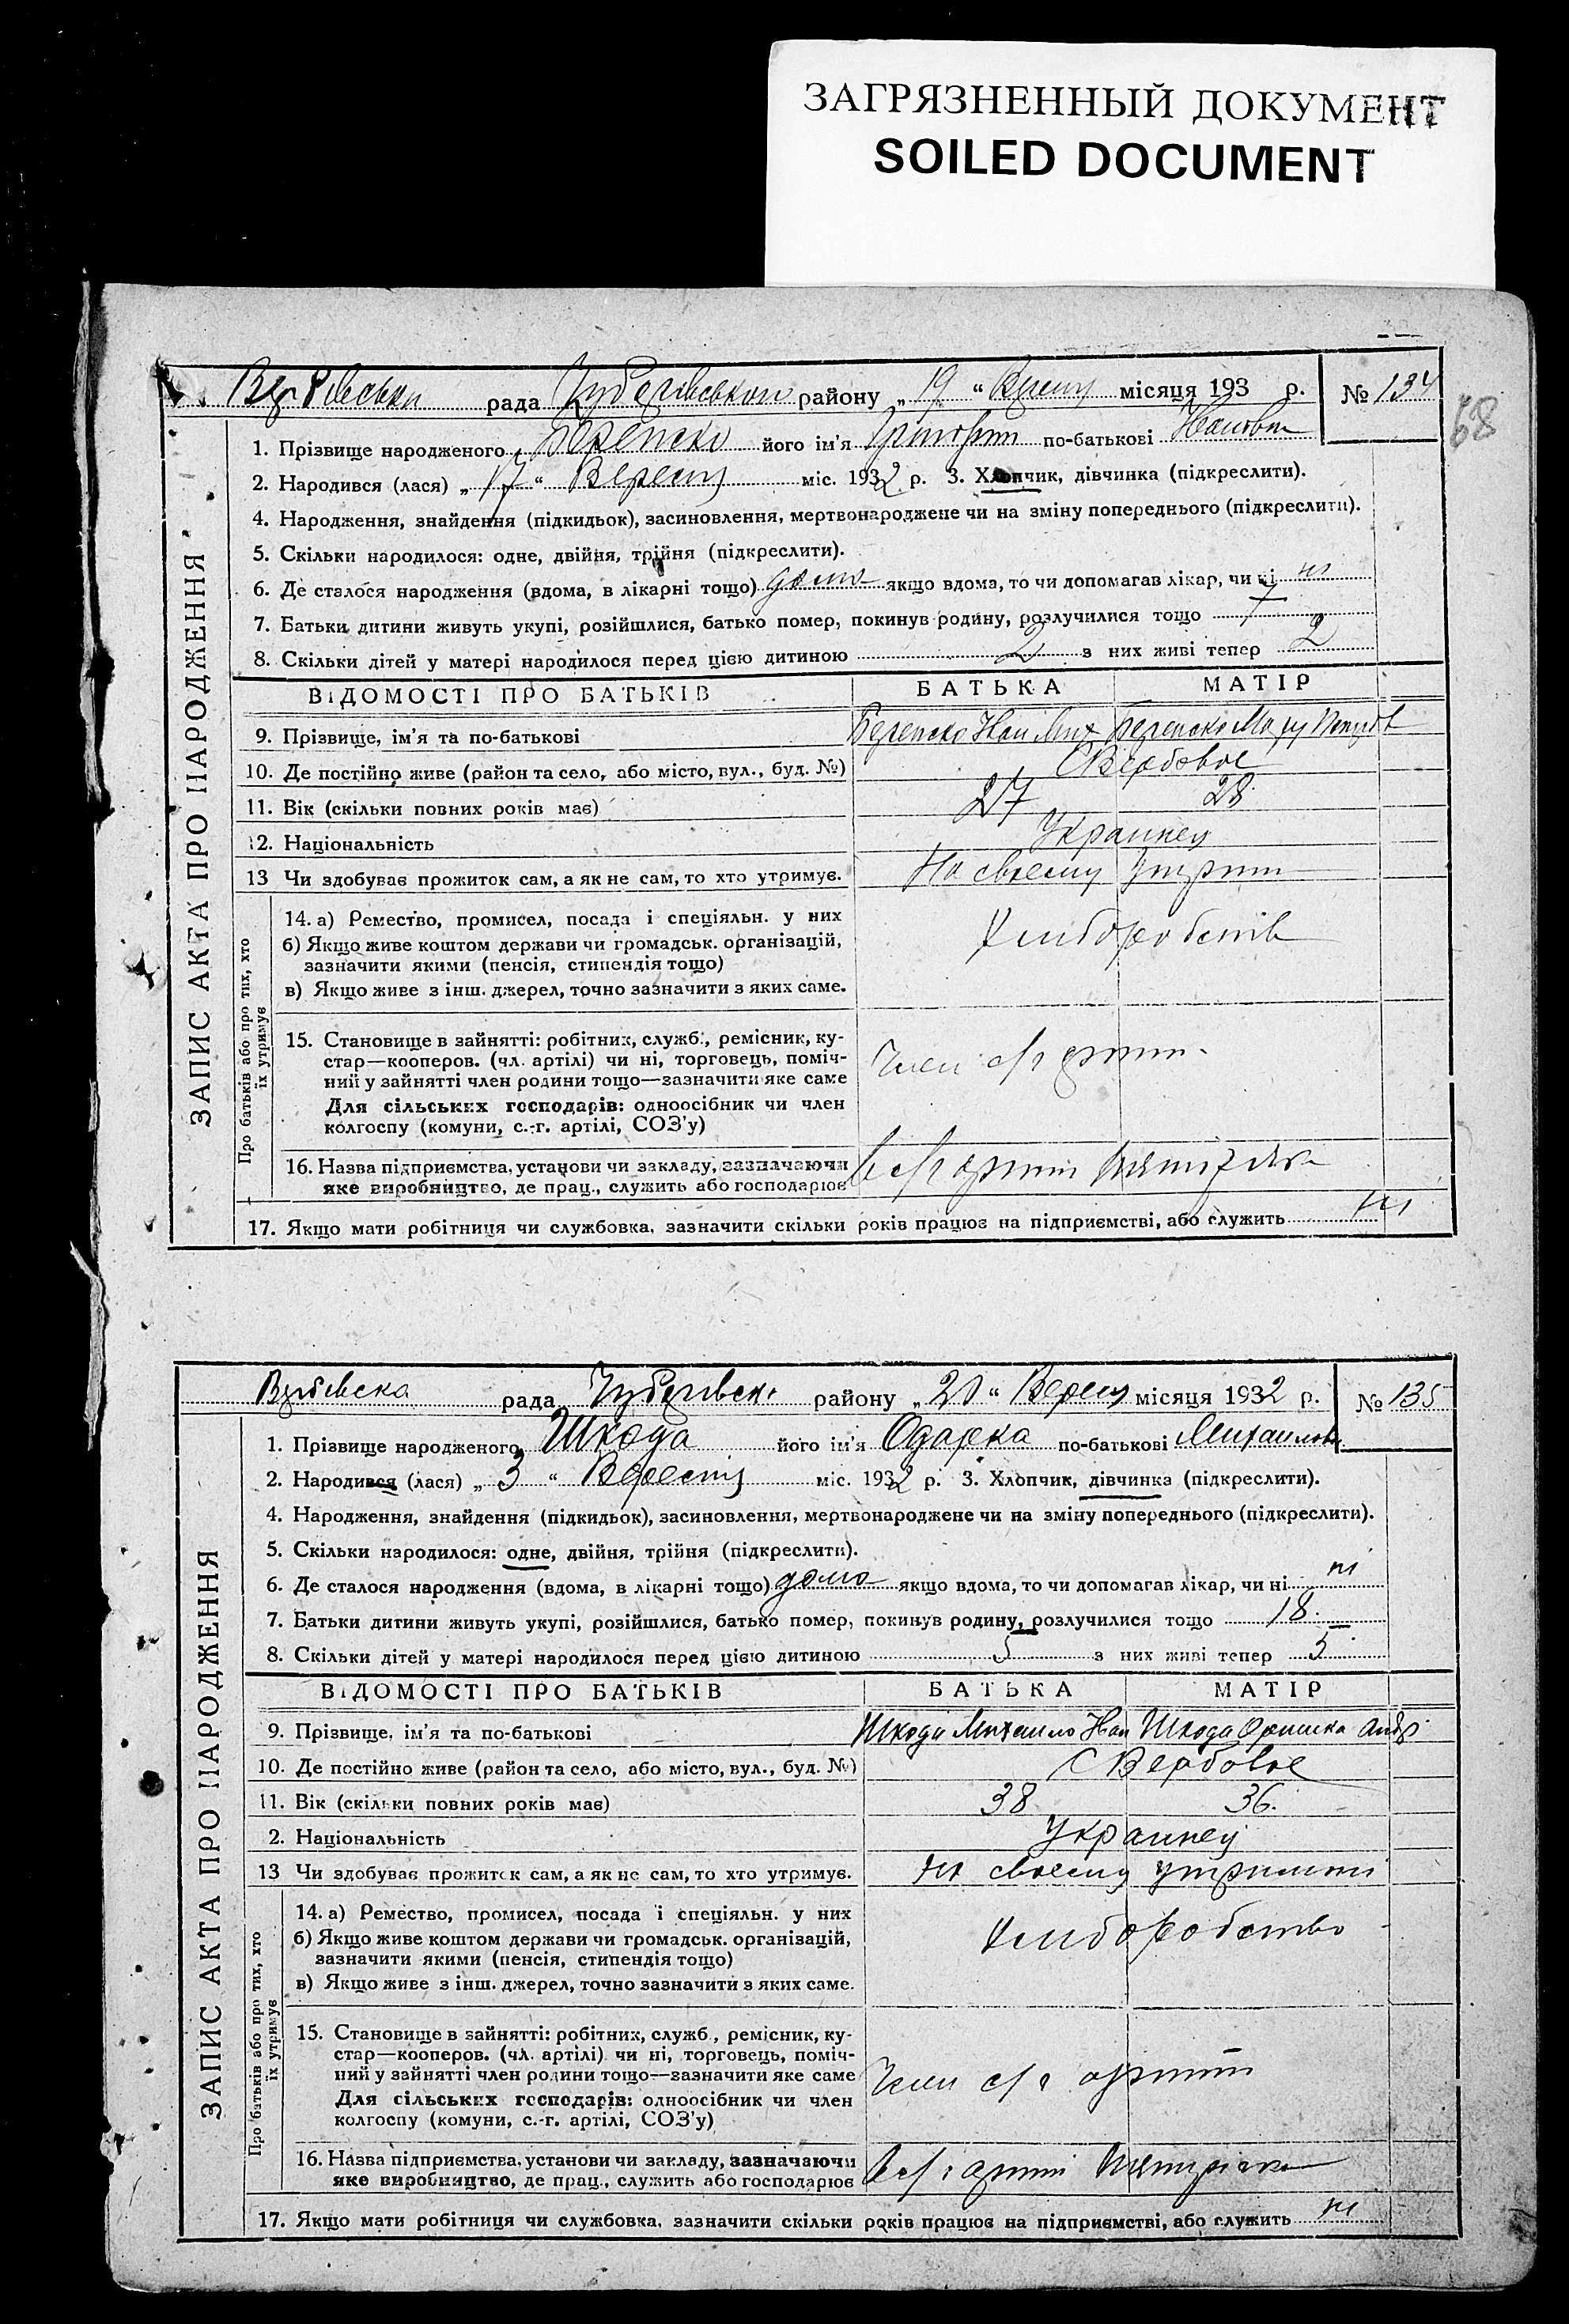 ЗАГРЯЗНЕННЫЙ ДОКУМЕНТ
SOILED DOCUMENT
рада району „19“ місяця 193 р. № 134
68
ЗАПИС АКТА ПРО НАРОДЖЕННЯ
1. Прізвище народженого його ім'я по-батькові
2. Народився (лася) „17“ Вересня міс. 1932 р. 3. Хлопчик, дівчинка (підкреслити).
4. Народження, знайдення (підкидьок), засиновлення, мертвонароджене чи на зміну попереднього (підкреслити).
5. Скільки народилося: одне, двійня, трійня (підкреслити).
6. Де сталося народження (вдома, в лікарні тощо) дома якщо вдома, то чи допомагав лікар, чи ні ні
7. Батьки дитини живуть укупі, розійшлися, батько помер, покинув родину, розлучилися тощо 7
8. Скільки дітей у матері народилося перед цією дитиною 2 з них живі тепер 2
ВІДОМОСТІ ПРО БАТЬКІВ БАТЬКА МАТІР
9. Прізвище, ім'я та по-батькові
10. Де постійно живе (район та село, або місто, вул., буд. №) С Вербовое
11. Вік (скільки повних років має) 27 28
12. Національність Украинец
13 Чи здобуває прожиток сам, а як не сам, то хто утримує. На своему утрим
Про батьків або про тих, хто їх утримує
14. а) Ремество, промисел, посада і спеціяльн. у них
б) Якщо живе коштом держави чи громадськ. організацій,
зазначити якими (пенсія, стипендія тощо)
в) Якщо живе з інш. джерел, точно зазначити з яких саме.
15. Становище в зайнятті: робітник, служб., ремісник, ку-
стар—кооперов. (чл. артілі) чи ні, торговець, поміч-
ний у зайнятті член родини тощо—зазначити яке саме
Член с/г артіл
Для сільських господарів: одноосібник чи член
колгоспу (комуни, с.-г. артілі, СОЗ'у)
16. Назва підприємства, установи чи закладу, зазначаючи
яке виробництво, де прац., служить або господарює
17. Якщо мати робітниця чи службовка, зазначити скільки років працює на підприємстві, або служить ні
рада району „20“ Вересня місяця 1932 р. № 135
ЗАПИС АКТА ПРО НАРОДЖЕННЯ
1. Прізвище народженого Шкода його ім'я Одарка по-батькові Михайлов
2. Народився (лася) „3“ Вересня міс. 1932 р. 3. Хлопчик, дівчинка (підкреслити).
4. Народження, знайдення (підкидьок), засиновлення, мертвонароджене чи на зміну попереднього (підкреслити).
5. Скільки народилося: одне, двійня, трійня (підкреслити).
6. Де сталося народження (вдома, в лікарні тощо) дома якщо вдома, то чи допомагав лікар, чи ні ні
7. Батьки дитини живуть укупі, розійшлися, батько помер, покинув родину, розлучилися тощо 18.
8. Скільки дітей у матері народилося перед цією дитиною 5 з них живі тепер 5
ВІДОМОСТІ ПРО БАТЬКІВ БАТЬКА МАТІР
9. Прізвище, ім'я та по-батькові Шкода Михаило Иван Шкода Оришка Андр
10. Де постійно живе (район та село, або місто, вул., буд. №) С Вербовое
11. Вік (скільки повних років має) 38 36.
2. Національність Украинец
13 Чи здобуває прожиток сам, а як не сам, то хто утримує. На своему утриманні
Про батьків або про тих, хто їх утримує
14. а) Ремество, промисел, посада і спеціяльн. у них
б) Якщо живе коштом держави чи громадськ. організацій,
зазначити якими (пенсія, стипендія тощо)
Хлиборобство
в) Якщо живе з інш. джерел, точно зазначити з яких саме.
15. Становище в зайнятті: робітник, служб., ремісник, ку-
стар—кооперов. (чл. артілі) чи ні, торговець, поміч-
ний у зайнятті член родини тощо—зазначити яке саме
Член с/г артіли
Для сільських господарів: одноосібник чи член
колгоспу (комуни, с.-г. артілі, СОЗ'у)
16. Назва підприємства, установи чи закладу, зазначаючи
яке виробництво, де прац., служить або господарює
17. Якщо мати робітниця чи службовка, зазначити скільки років працює на підприємстві, або служить ні